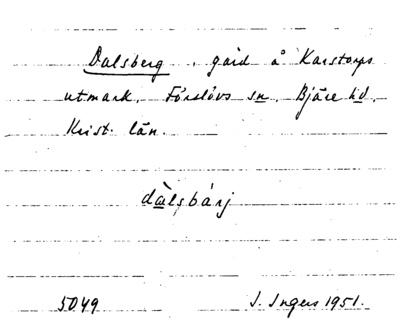 Dalsberg, gård å Karstorps
utmark, Förslövs sn, Bjäre hd,
Krist. län.
dàlsbárj
5049 I. Ingers 1951.